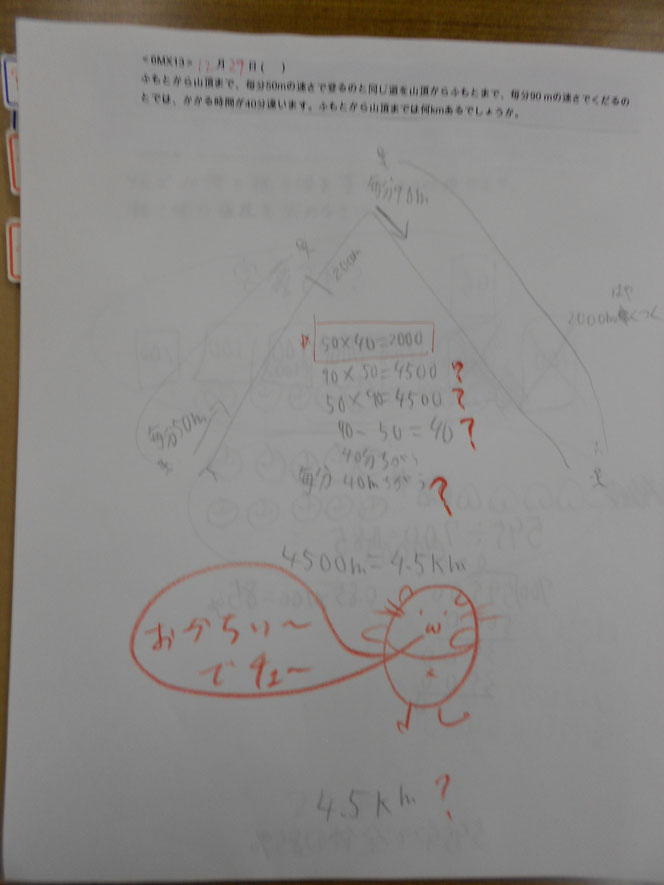 <6MX13> 12月29日( )
ふもとから山頂まで、毎分50mの速さで登るのと同じ道を山頂からふもとまで、毎分90mの速さでくだるの
とでは、かかる時間が40分違います。ふもとから山頂までは何kmあるでしょうか。
毎分90m
200m
はや
2000m くつく
50×40=2000
90×50=4500 ?
50×90=4500 ?
90-50=40 ?
40分ちがう
毎分 40mちがう ?
毎分50m
4500m=4.5km
おかちい〜
でチュ〜
4.5km ?